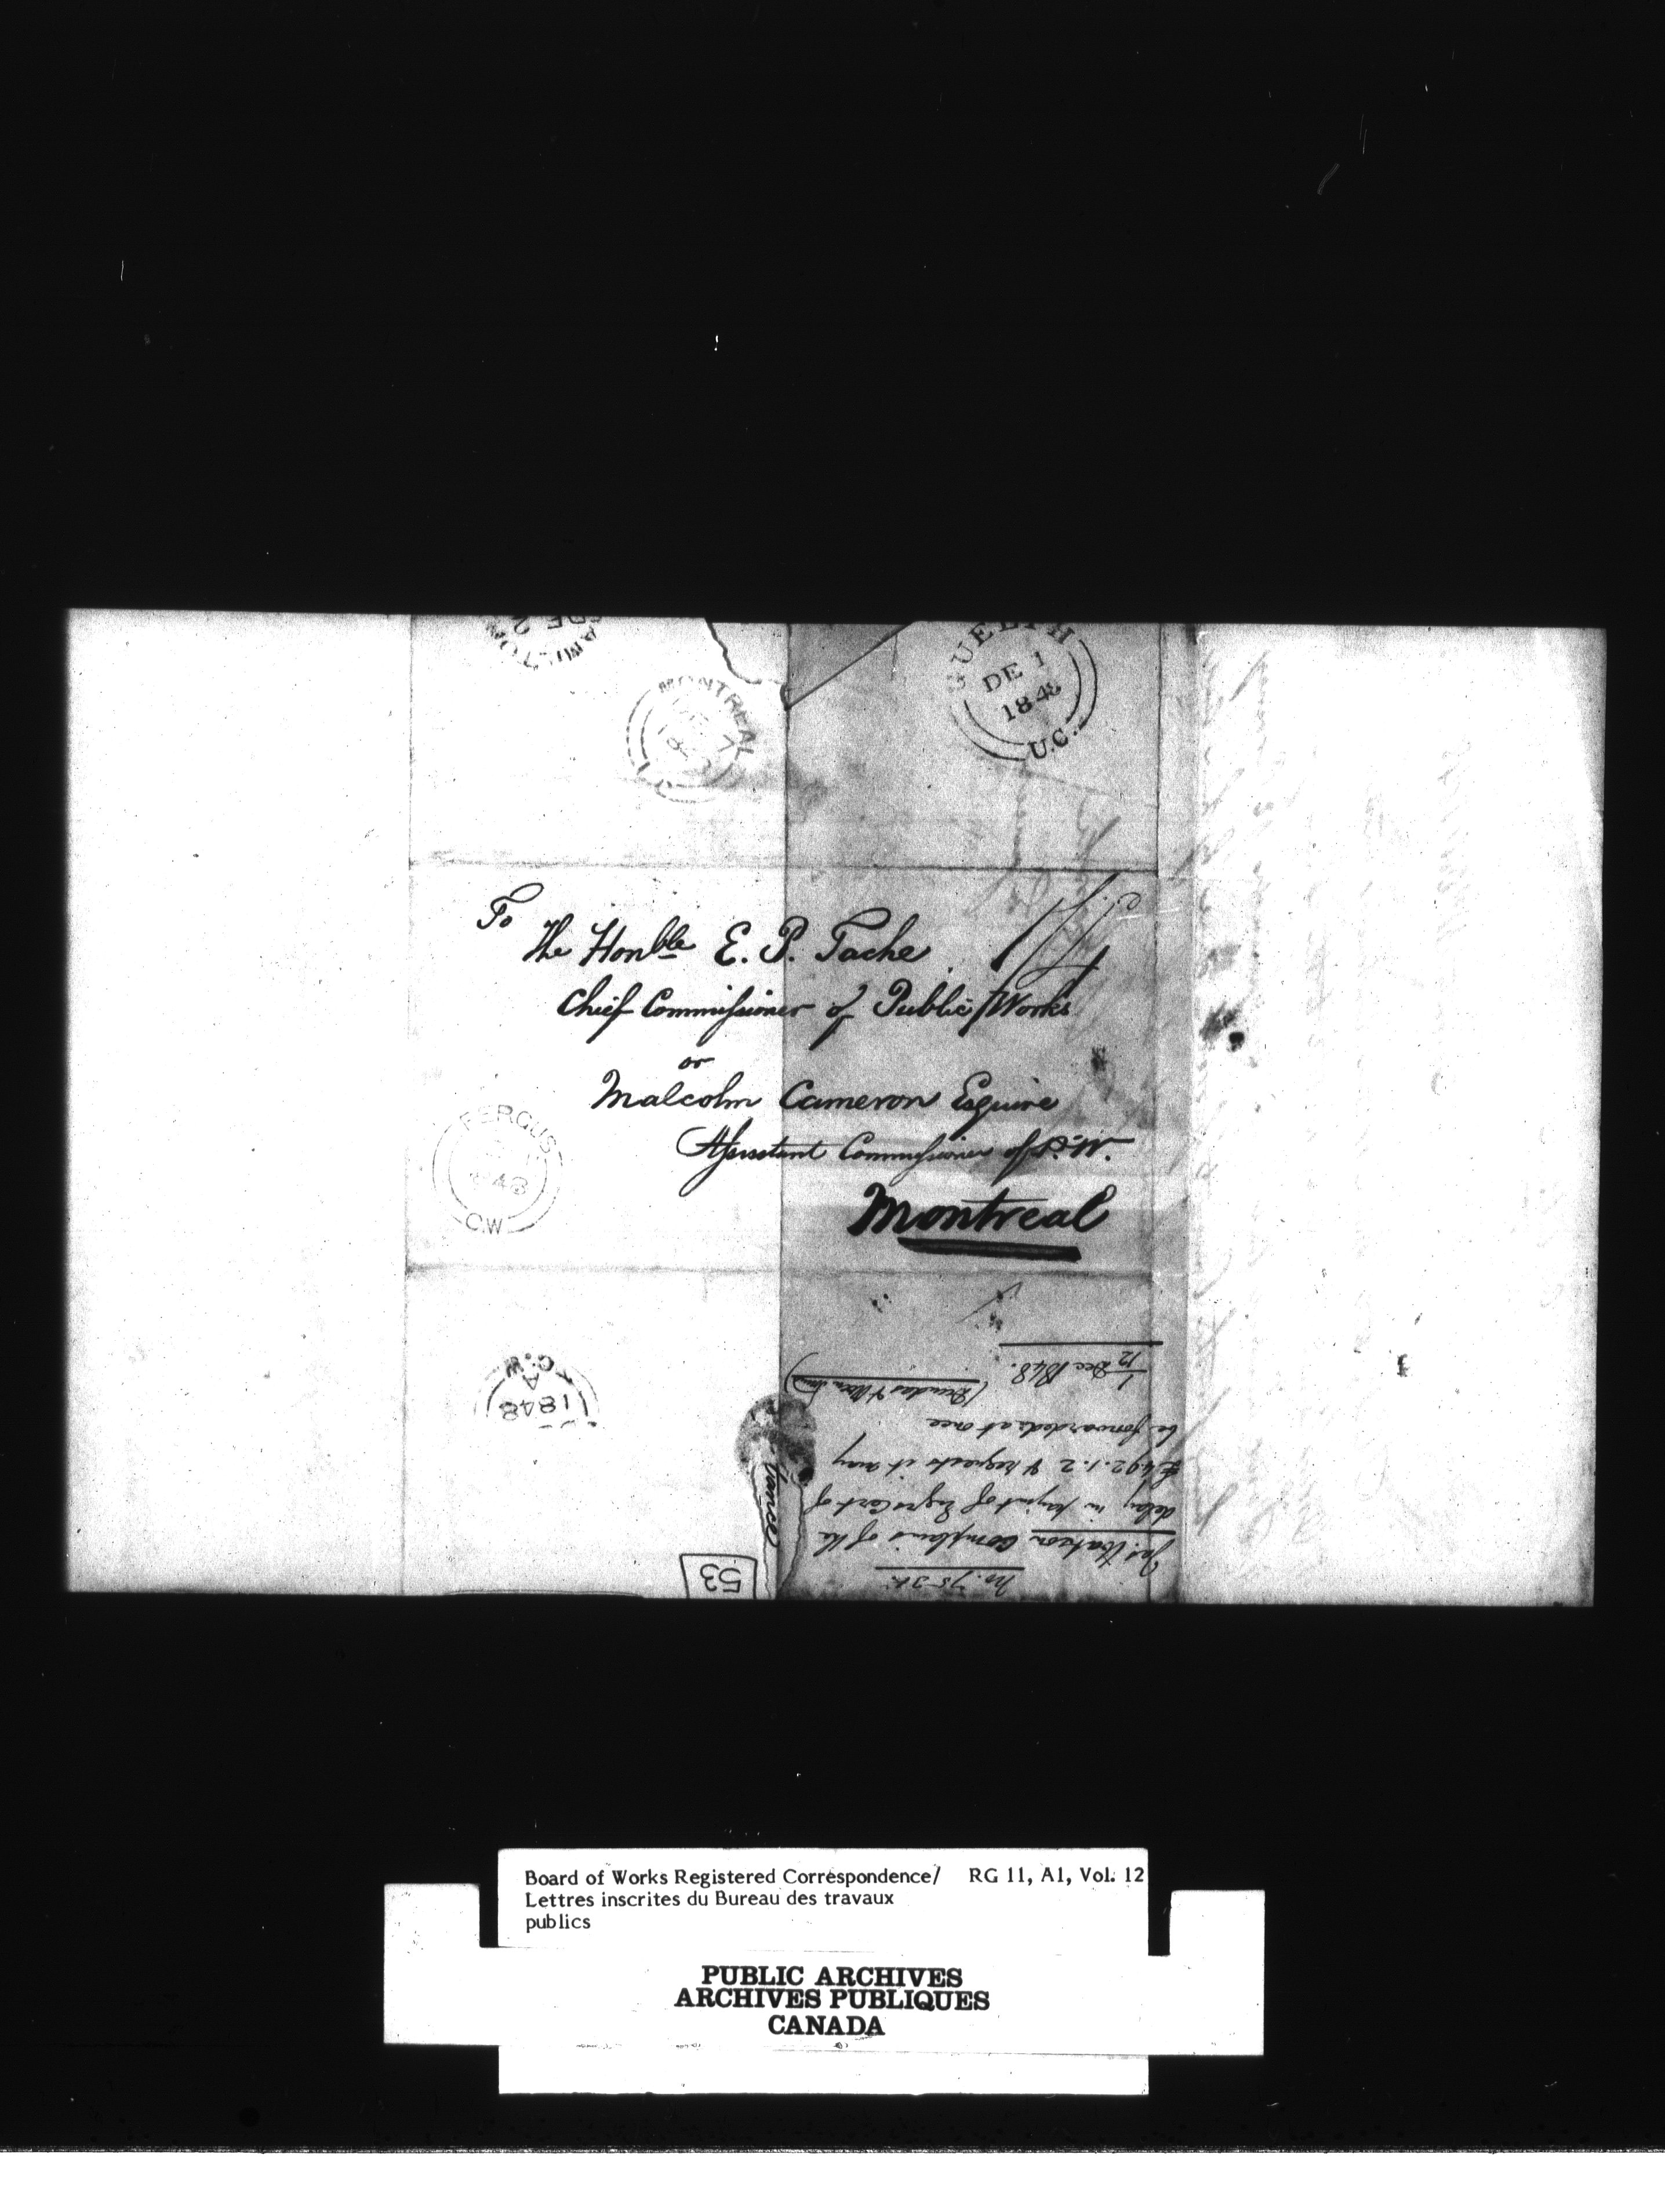 DE 2
MONTREAL
GUELPH
DE 1
1848
U.C.
To
The Honble E. P. Tache
Chief Commissioner of Public Works
or
Malcolm Cameron Esquire
Assistant Commissioner of P.W.
Montreal
FERGUS
48
C.W
C.W
A
1848
53
Jas. Watson Complains of the
delay in paymt of Engrs Cert of
£492.1.2 & requests it may
be forwarded at once
1 Dec 1848.
12
Board of Works Registered Correspondence/ RG 11, A1, Vol. 12
Lettres inscrites du Bureau des travaux
publics
PUBLIC ARCHIVES
ARCHIVES PUBLIQUES
CANADA